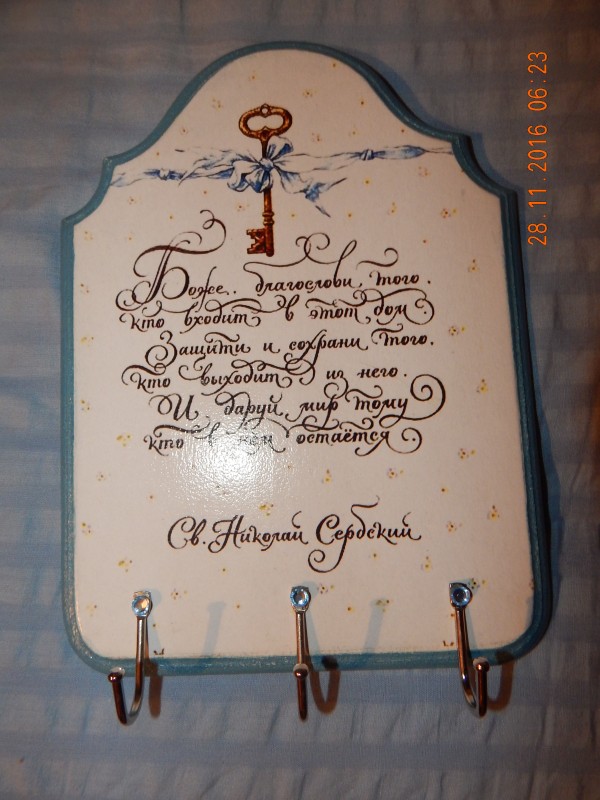 Боже.. благослови того.
кто входит в этот дом.
Защити и сохрани того.
кто выходит из него.
И даруй мир тому
кто в нем остаётся.
Св. Николай Сербский
28.11.2016 06:23